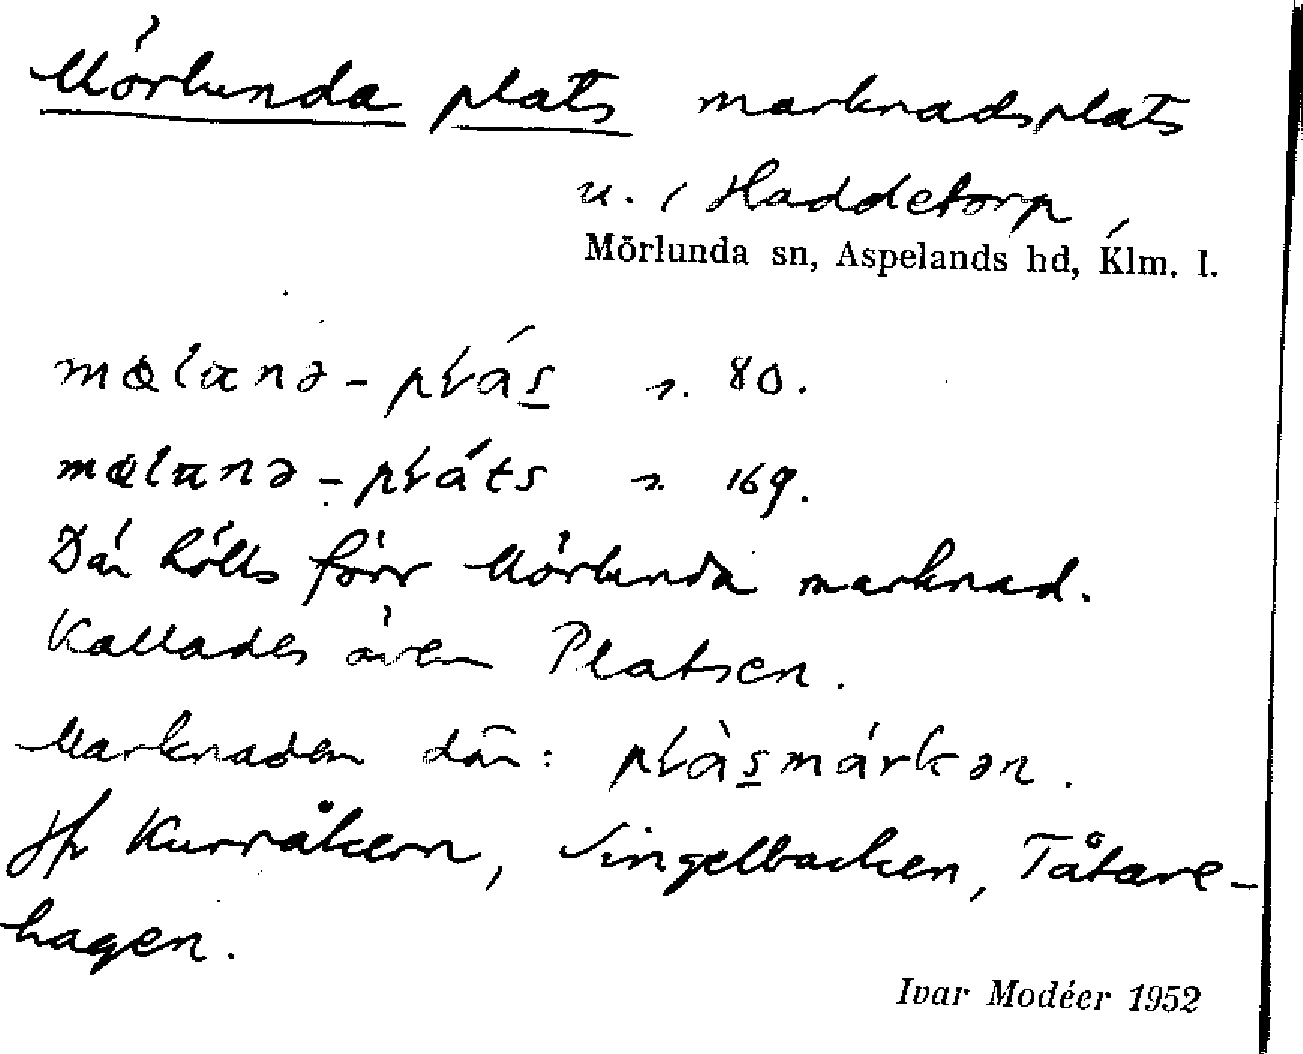 Mörlunda plats marknadsplats
u. i Haddetorp,
Mörlunda sn, Aspelands hd, Klm. l.
mɷlɯnə - plás s. 80.
mɷlɯnə - pláts s. 169.
Där hölls förr Mörlunda marknad.
Kallades även Platsen.
Marknaden där: plàsmárkən.
Jfr Kurråkern, Singelbacken, Tåtare-
hagen.
Ivar Modéer 1952